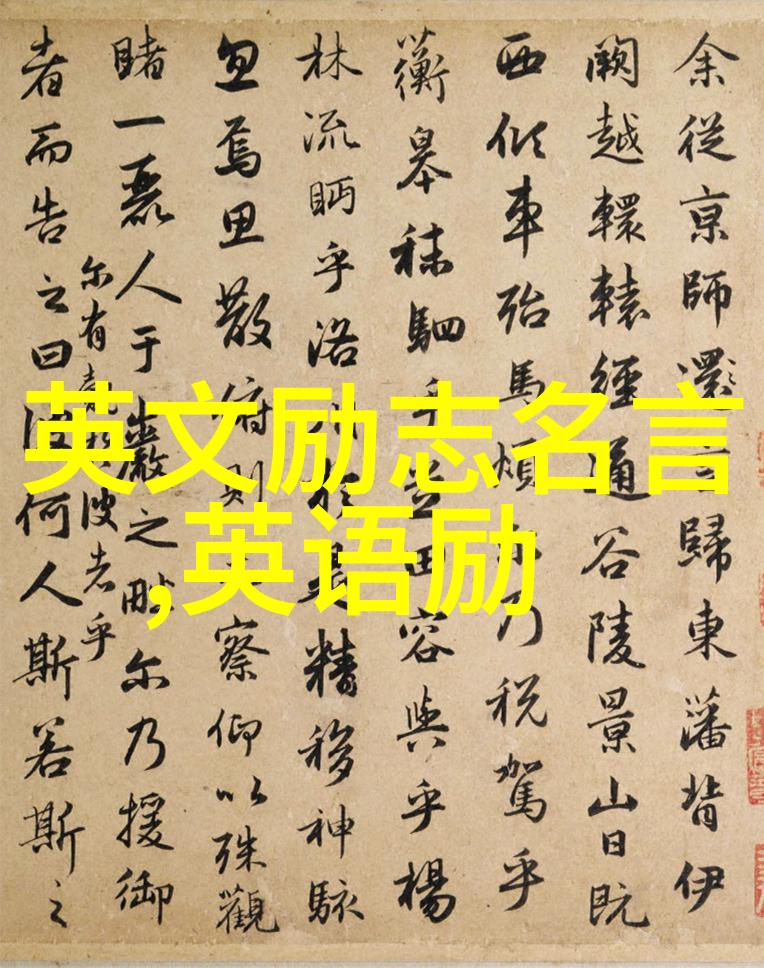 英文励志名言
,英语励
余從京師還言歸東藩背伊
闕越轘轅經通谷陵景山日既
西傾車殆馬煩尔乃税駕乎
蘅皋秣駟乎芝田容與乎楊
林流眄乎洛川於是精移神駭
忽焉思散俯則察仰以殊觀
睹一麗人于巖之畔尔乃援御
者而告之曰
尔有彼者乎
何人斯若斯之